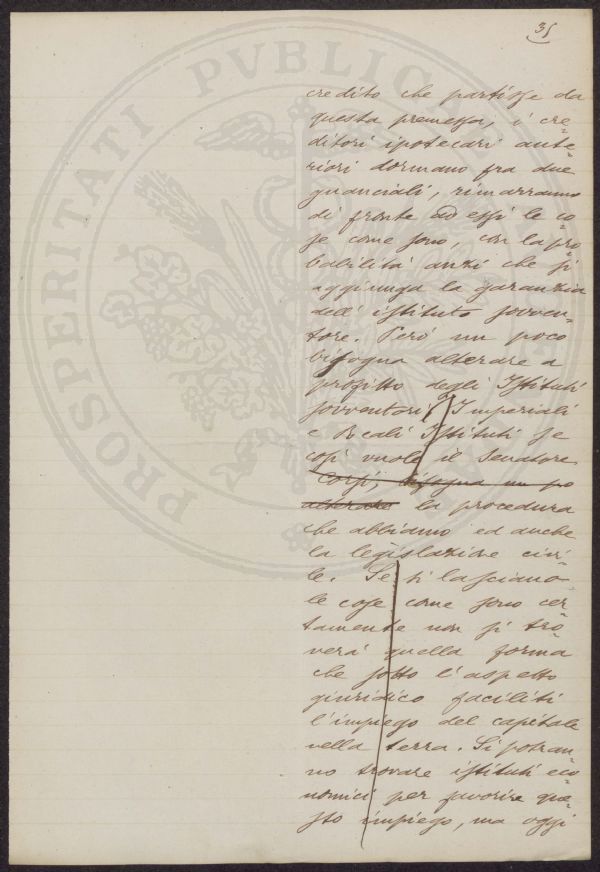 35
credito che partisse da
questa premessa; i cre=
ditori ipotecari ante=
riori dormano fra due
guanciali, rimarranno
di fronte ad essi le co=
se come sono, con la pro=
babilità anzi che si
aggiunga la garanzia
dell' istituto sovven=
tore. Però un poco
bisogna alterare a
profitto degli Istituti
sovventori Imperiali
e Reali Istituti se
così vuole il Senatore
Corsi, bisogna un po
alterare la procedura
che abbiamo ed anche
la legislazione civi=
le. Se si lasciano
le cose come sono cer=
tamente non si tro=
verà quella forma
che sotto l'aspetto
giuridico faciliti
l'impiego del capitale
nella terra. Si potran=
no trovare istituti eco=
nomici per favorire que=
sto impiego, ma oggi
PROSPERITATI PVBLICAE